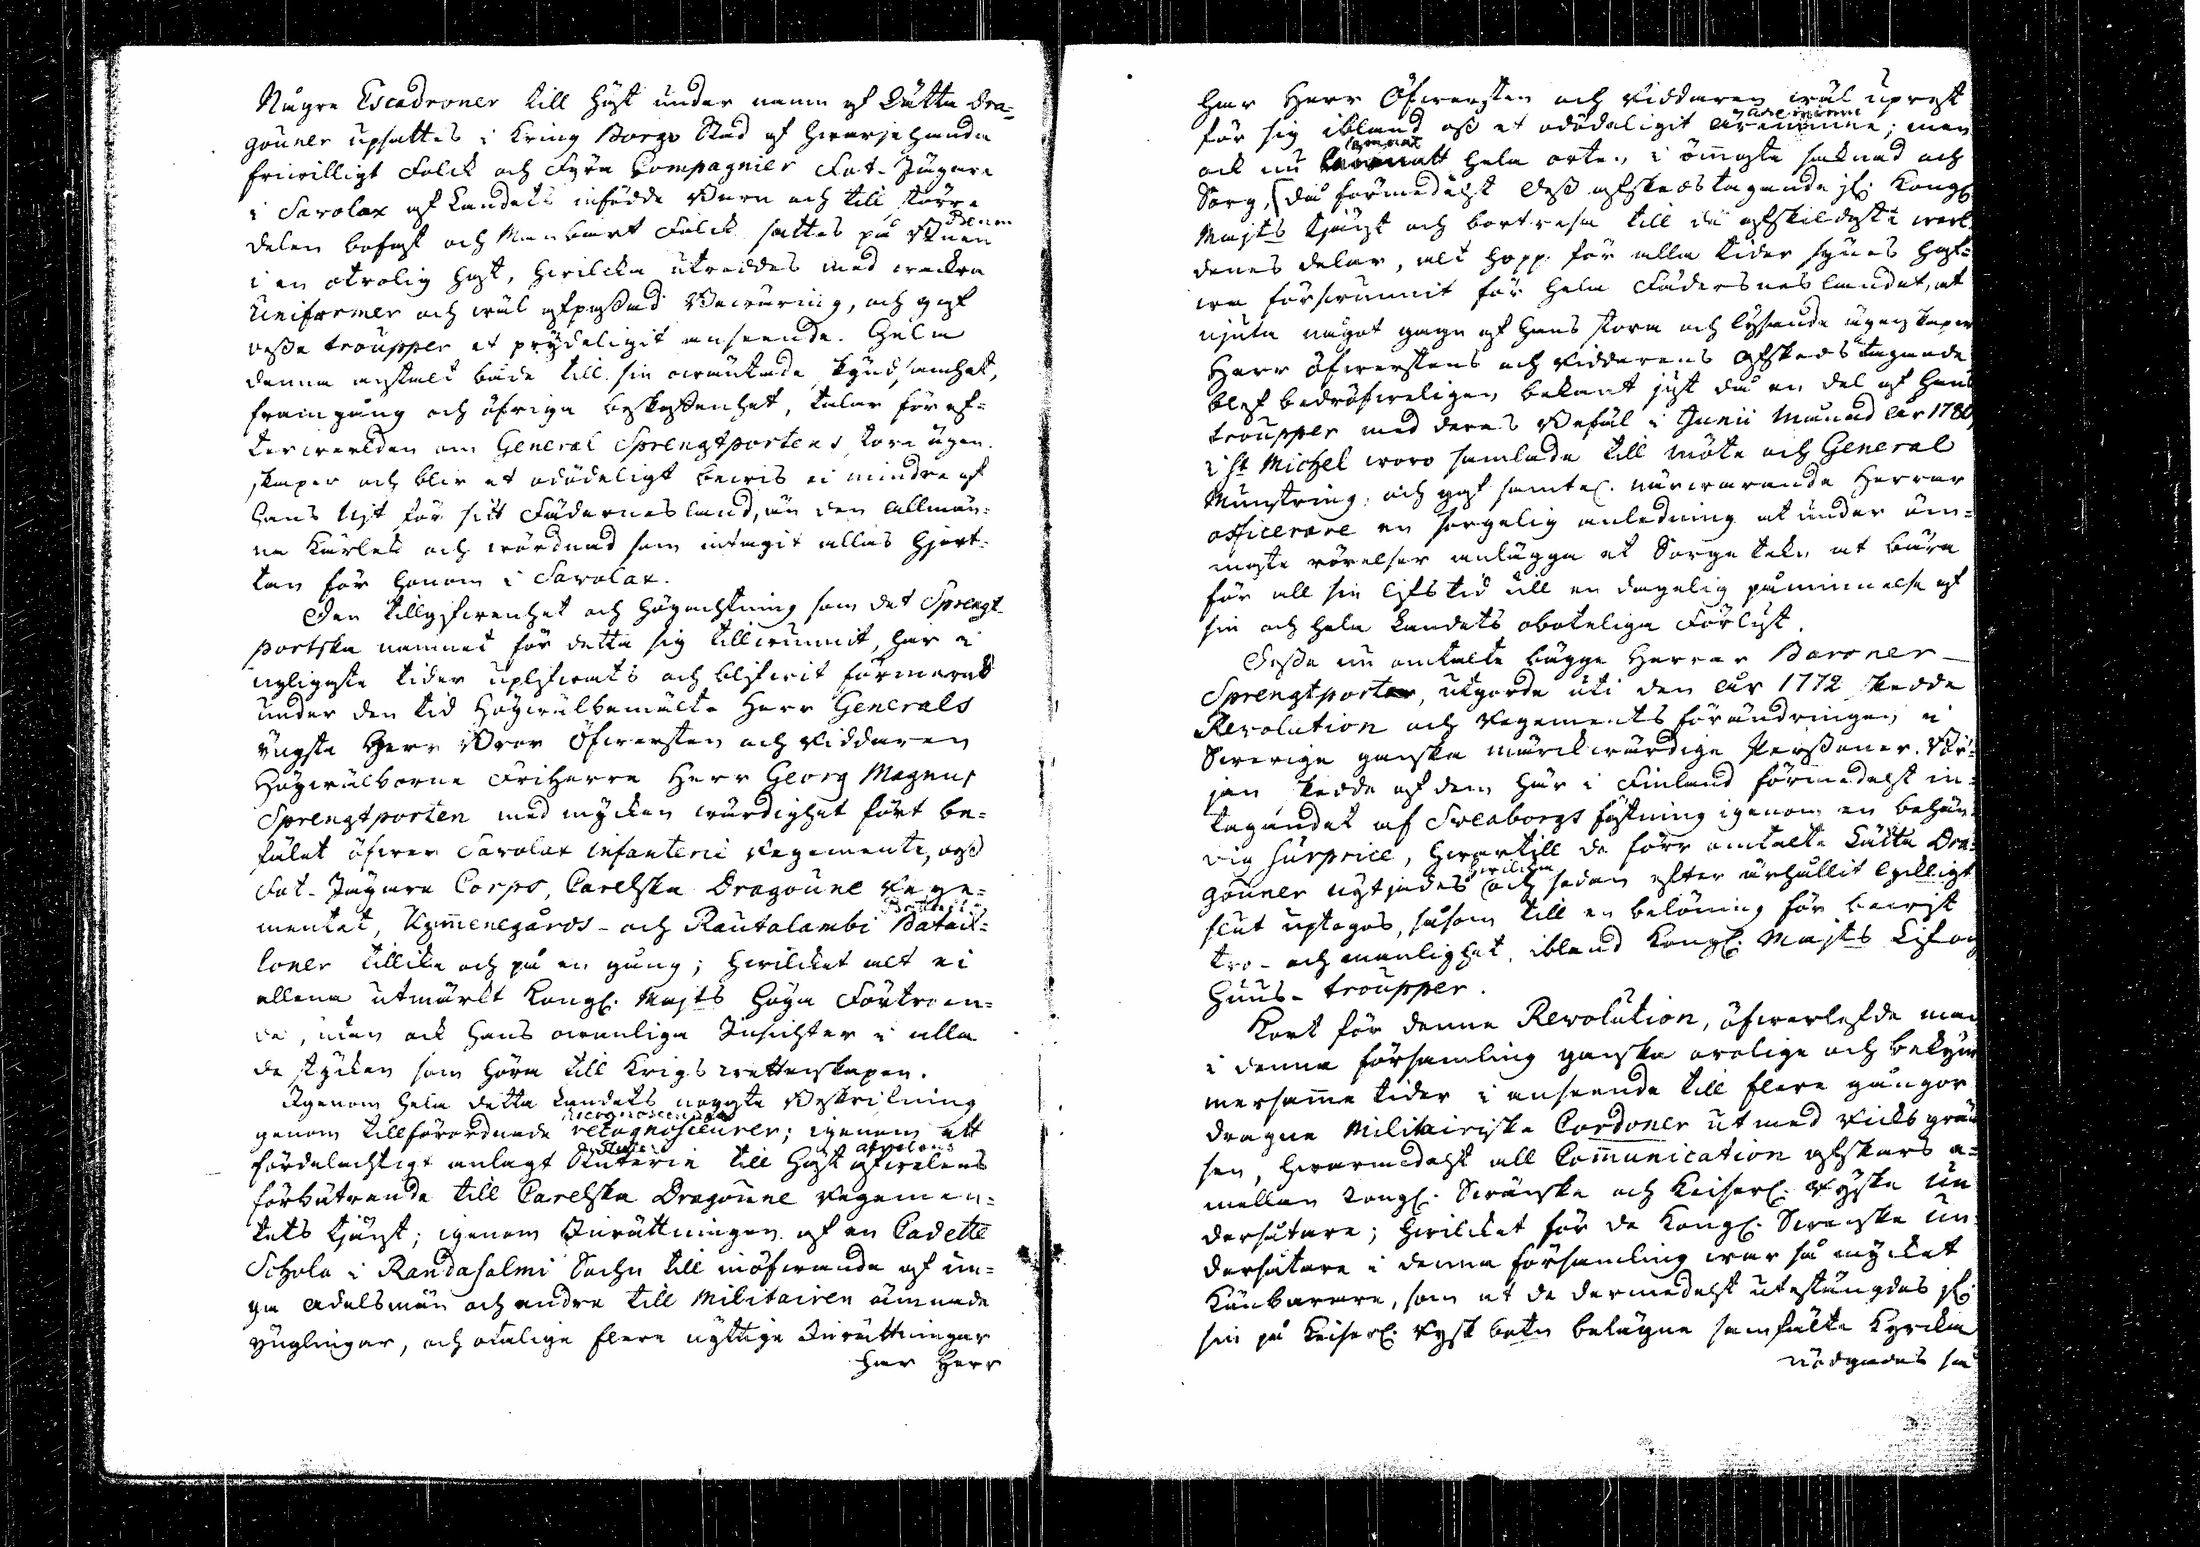 Någre Escadroner till häst under namn af Lätta Dra-
gouner upsattes i kring Borgo Stad af hwarjehanda
friwilligt Folck och Fyra Compagnier Fot-Jägare
i Savolax af Landets infödde Barn och till större
delen bofast och Manbart Folck sattes på Benen
Benen
i en otrolig hast, hwilcka utreddes med wackra
Uniformer och wäl afpassad Bewäring, och gaf
desse troupper et prydeligit anseende. Hela
denna anstalt både till sin owäntade skyndsamhet,
framgång och öfriga beskaffenhet, talar för ef-
terwerlden om General Sprengtportens stora ägen-
skaper och blir et odödeligt bewis ei mindre af
Hans Nit för sitt Fädernesland, än den allmän-
na Kärlek och wördnad som intagit allas hjert-
tan för honom i Savolax.
Den tillgifwenhet och högachtning som det Sprengt-
portska namnet för detta sig tillwunnit, har i
nyligaste tider uplifwats och blifwit förmerat
under den tid Högwälbemälte Herr Generals
yngste Herr Bror Öfwersten och Riddaren
Högwälborne Friherre Herr Georg Magnus
Sprengtporten med mycken wärdighet fört be-
fälet öfwer Savolax Infanterie Regemente, dess
Fot-Jägare Corps, Carelska Dragoune Rege-
mentet, Kymmenegårds- och Rautalambi Batail-
loner tillika och på en gång; hwilcket alt ei
allena utmärkt Kongl. Majts Höga Förtroen-
de, utan ock Hans owanliga Insichter i alla
de stycken som höra till Krigswettenskapen.
Igenom hela detta Landets nogaste Beskrifning
genom tillförordnade retognoscieurer; igenom ett
fördelachtigt anlagt Stuterie till Häst afwelens
afvelens
förbätrande till Carelska Dragoune Regemen-
tets tjänst; igenom Inrättningen af en Cadette
Schola i Randasalmi Sochn till inöfwande af un-
ga adelsmän och andre till Militairen ämnade
ynglingar, och otalige flere nyttige Inrättningar
har Herr
har Herr Öfwersten och Riddaren wäl uprest
för sig ibland oss et odödeligit äreminne; men
äreminne
ock nu lemnatt hela orten, i ömmaste saknad och
lemnat
Sorg, då förmedelst Dess afskedstagande ifr. Kongl.
Majts tjänst och bortresa till de afskildaste werl-
denes delar, alt hopp för alla tider synes haf-
wa förswunnit för hela Fädersneslandet, at
njuta något gagn af Hans stora och lysande ägenskaper
Herr Öfwerstens och Riddarens afskedstagande
blef bedröfweligen bekant just då en del af Hans
troupper med deras Befäl i Junii Månad år 1780
i St Michel woro samlade till möte och General
Munstring, och gaf samtel. närwarande Herrar
officerare en sorgelig anledning at under öm-
maste rörelser anlägga et Sorgetekn at bära
för all sin lifstid till en dagelig påminnelse af
sin och hela Landets obotelige Förlust.
Desse nu omtalte bägge Herrar Baroner
Sprengtporten, utgjorde uti den år 1772 skedde
Revolution och Regementsförändringen i
Swerige ganska märckwärdige Personer. Bör-
jan skedde af dem här i Finland förmedelst in-
tagandet af Sveaborgs fästning igenom en behän-
dig surprice, hwartill de förr omtalte Lätta Dra-
gouner nytjades och sedan efter ärhållit lyckligt
hwilcka
slut uptogos, såsom till en belöning för bewist
tro- och manlighet, ibland Kongl. Majts Lif och
Huus-troupper.
Kort för denna Revolution, öfwerlefde man
i denna församling ganska orolige och bekym-
mersamme tider i anseende till flere gångor
dragne Militairiska Cordoner ut med Riks grän-
sen, hwarmedelst all Communication afskars e-
mellan Kongl. Swänske och Keiserl. Ryske Un-
dersåtare; hwilcket för de Kongl. Swenske Un-
dersåtare i denna församling war så mycket
känbarare, som at de dermedelst utestängdes ifr.
sin på Keiserl. Rysk botn belägne samfälte Kyrcka
nödgades så